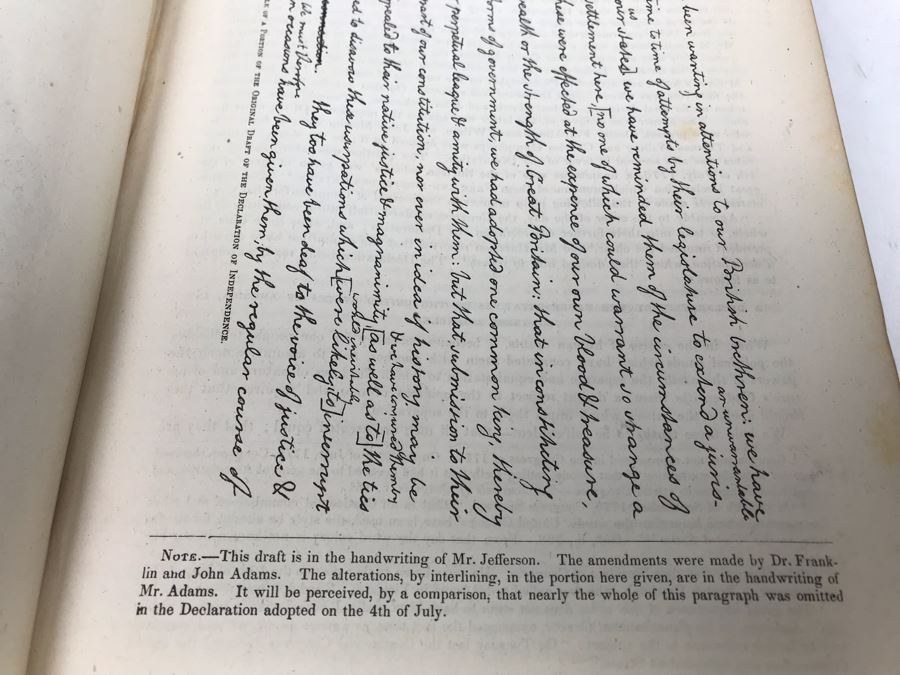 been wanting in attentions to our British brethren: we have
an unwarrantable
time to time of attempts by their legislature to extend a juris-
us
our states] we have reminded them of the circumstances of
settlement here, [no one of which could warrant so strange a
these were effected at the expence of our own blood & treasure,
wealth or the strength of Great Britain: that in constituting
forms of government, we had adopted one common king thereby
perpetual league & amity with them: but that submission to their
part of our constitution, nor ever in idea if history may be
& we have conjured them by
appealed to their native justice & magnanimity, [as well as to] the ties
would inevitably
to disavow these usurpations which [were likely to] interrupt
they too have been deaf to the voice of justice &
We must therefore
occasions have been given them, by the regular course of
OF A PORTION OF THE ORIGINAL DRAFT OF THE DECLARATION OF INDEPENDENCE.
NOTE.—This draft is in the handwriting of Mr. Jefferson. The amendments were made by Dr. Frank-
lin and John Adams. The alterations, by interlining, in the portion here given, are in the handwriting of
Mr. Adams. It will be perceived, by a comparison, that nearly the whole of this paragraph was omitted
in the Declaration adopted on the 4th of July.